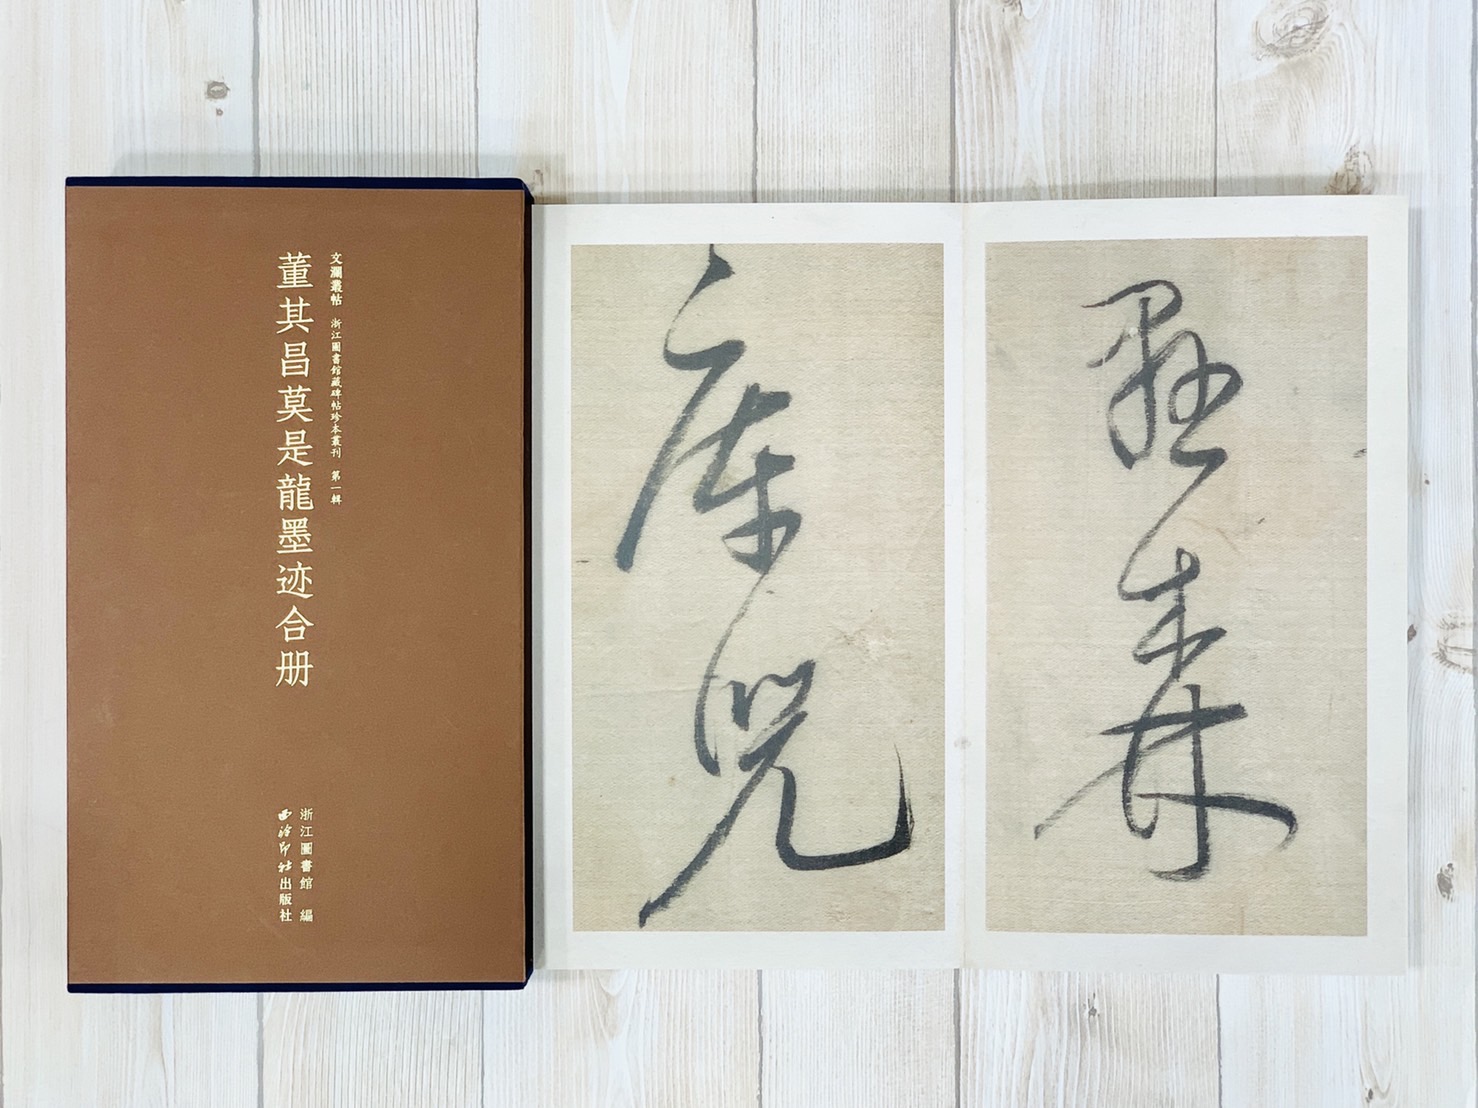 文瀾叢帖 浙江圖書館藏碑帖珍本叢刊 第一輯
董其昌莫是龍墨迹合册
浙江圖書館 編
西泠印社出版社